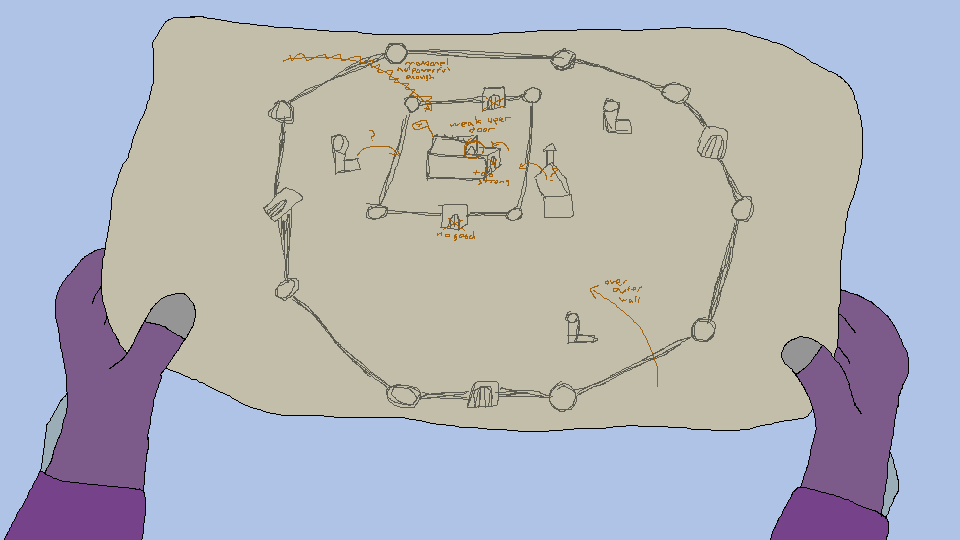 not powerful
enough
weak uper
door
?
too
strong
no good
over
outer
wall